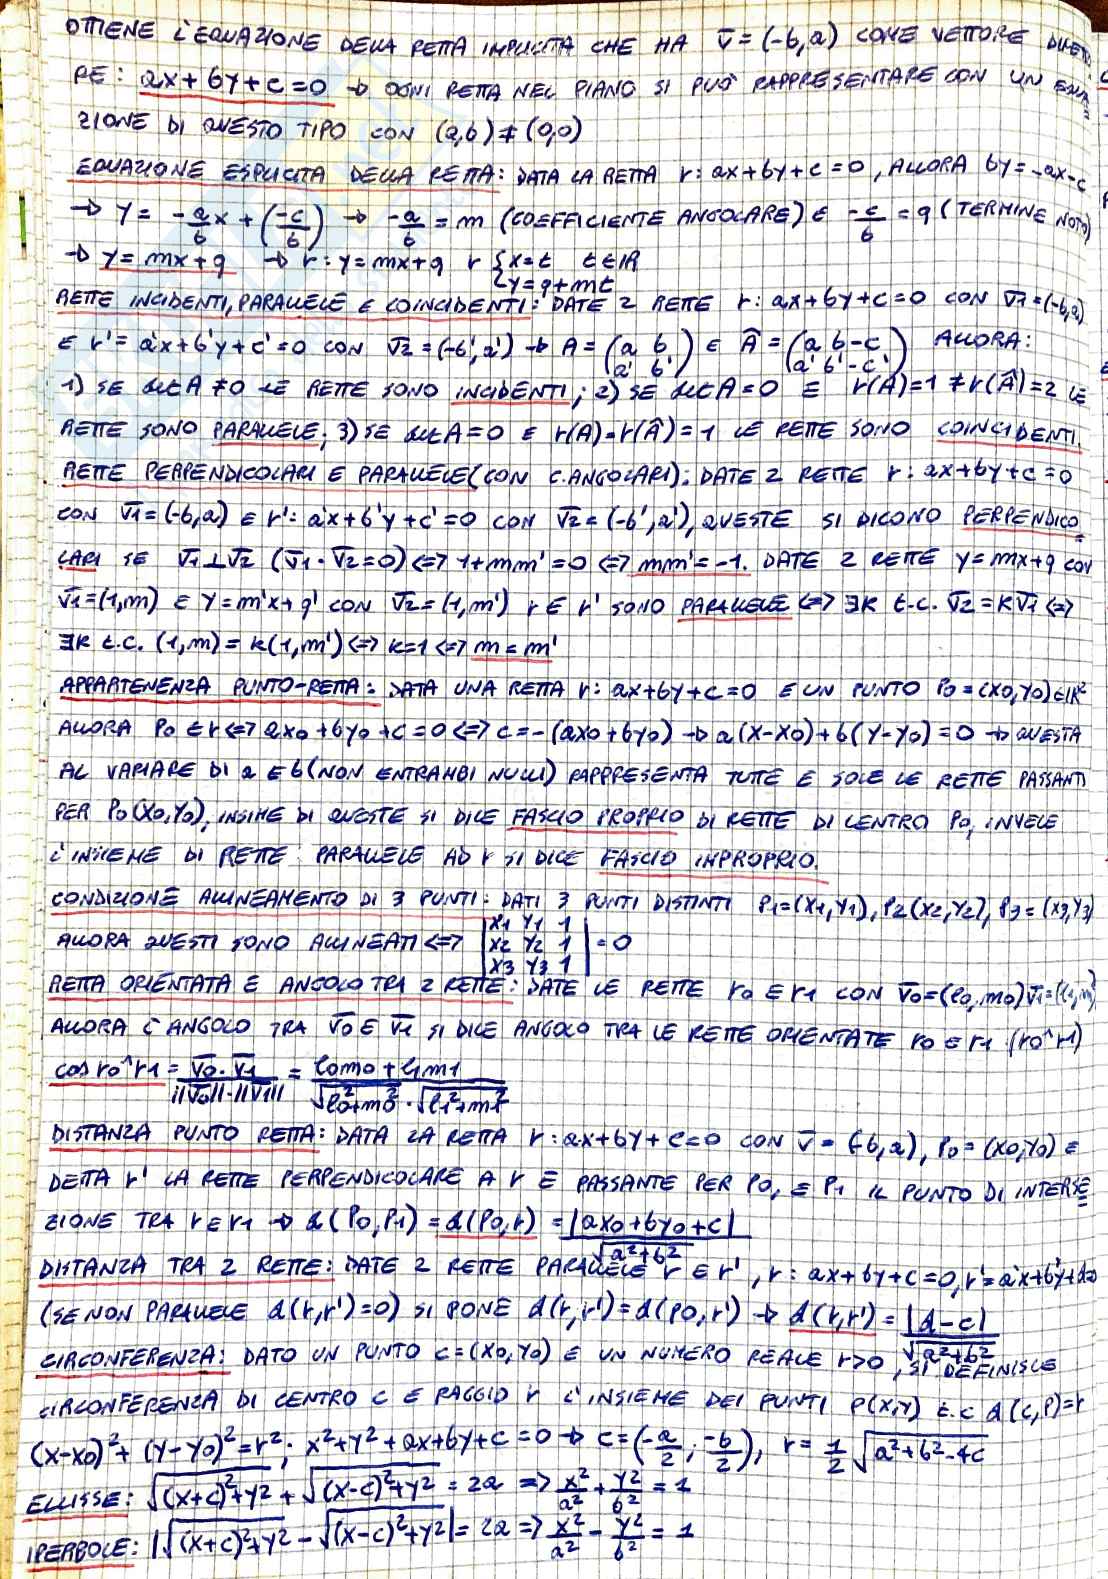 OTTIENE L'EQUAZIONE DELLA RETTA IMPLICITA CHE HA v̅=(-b,a) COME VETTORE DIRETTO
RE: ax+by+c=0 → OGNI RETTA NEL PIANO SI PUÒ RAPPRESENTARE CON UN EQUA
ZIONE DI QUESTO TIPO CON (a,b)≠(0,0)
EQUAZIONE ESPLICITA DELLA RETTA: DATA LA RETTA r: ax+by+c=0, ALLORA by=-ax-c
→ y= -a/b x + (-c/b) → -a/b = m (COEFFICIENTE ANGOLARE) E -c/b = q (TERMINE NOTO)
→ y=mx+q → r: y=mx+q r {x=t t∈ℝ
{y=q+mt
RETTE INCIDENTI, PARALLELE E COINCIDENTI: DATE 2 RETTE r: ax+by+c=0 CON v̅1=(-b,a)
E r'= a'x+b'y+c'=0 CON v̅2=(-b',a') → A= (a b) E Â= (a b -c) ALLORA:
(a' b') (a' b' -c')
1) SE det A≠0 LE RETTE SONO INCIDENTI; 2) SE det A=0 E r(A)=1≠r(Â)=2 LE
RETTE SONO PARALLELE; 3) SE det A=0 E r(A)=r(Â)=1 LE RETTE SONO COINCIDENTI.
RETTE PERPENDICOLARI E PARALLELE (CON C. ANGOLARI): DATE 2 RETTE r: ax+by+c=0
CON v̅1=(-b,a) E r': a'x+b'y+c'=0 CON v̅2=(-b',a'), QUESTE SI DICONO PERPENDICO
LARI SE v̅1⊥v̅2 (v̅1·v̅2=0) <=> 1+mm'=0 <=> mm'=-1. DATE 2 RETTE y=mx+q CON
v̅1=(1,m) E y=m'x+q' CON v̅2=(1,m') r E r' SONO PARALLELE <=> ∃k t.c. v̅2=kv̅1 <=>
∃k t.c. (1,m)=k(1,m') <=> k=1 <=> m=m'
APPARTENENZA PUNTO-RETTA: DATA UNA RETTA r: ax+by+c=0 E UN PUNTO P0=(x0,y0)∈ℝ²
ALLORA P0∈r <=> ax0+by0+c=0 <=> c=-(ax0+by0) → a(x-x0)+b(y-y0)=0 → QUESTA
AL VARIARE DI a E b (NON ENTRAMBI NULLI) RAPPRESENTA TUTTE E SOLE LE RETTE PASSANTI
PER P0(x0,y0), INSIME DI QUESTE SI DICE FASCIO PROPRIO DI RETTE DI CENTRO P0, INVECE
L'INSIEME DI RETTE PARALLELE AD r SI DICE FASCIO IMPROPRIO.
CONDIZIONE ALLINEAMENTO DI 3 PUNTI: DATI 3 PUNTI DISTINTI P1=(x1,y1), P2(x2,y2), P3=(x3,y3)
|x1 y1 1|
ALLORA QUESTI SONO ALLINEATI <=> |x2 y2 1| =0
|x3 y3 1|
RETTA ORIENTATA E ANGOLO TRA 2 RETTE: DATE LE RETTE r0 E r1 CON v̅0=(l0,m0) v̅1=(l1,m1)
ALLORA L'ANGOLO TRA v̅0 E v̅1 SI DICE ANGOLO TRA LE RETTE ORIENTATE r0 E r1 (r0^r1)
cos r0^r1 = v̅0·v̅1/||v̅0||·||v̅1|| = l0m0+l1m1/√l0²+m0²·√l1²+m1²
DISTANZA PUNTO RETTA: DATA LA RETTA r: ax+by+c=0 CON v̅=(-b,a), P0=(x0,y0) E
DETTA r' LA RETTE PERPENDICOLARE A r E PASSANTE PER P0, E P1 IL PUNTO DI INTERSE
ZIONE TRA r E r1 → d(P0,P1)=d(P0,r)=|ax0+by0+c|/√a²+b²
DISTANZA TRA 2 RETTE: DATE 2 RETTE PARALLELE r E r', r: ax+by+c=0, r'=a'x+b'y+d=0
(SE NON PARALLELE d(r,r')=0) SI PONE d(r,r')=d(P0,r') → d(r,r')=|d-c|/√a²+b²
CIRCONFERENZA: DATO UN PUNTO C=(x0,y0) E UN NUMERO REALE r>0, SI DEFINISCE
CIRCONFERENZA DI CENTRO C E RAGGIO r L'INSIEME DEI PUNTI P(x,y) t.c d(C,P)=r
(x-x0)²+(y-y0)²=r²; x²+y²+ax+by+c=0 → C=(-a/2; -b/2), r=1/2 √a²+b²-4c
ELLISSE: √(x+c)²+y² + √(x-c)²+y² = 2a => x²/a² + y²/b² = 1
IPERBOLE: |√(x+c)²+y² - √(x-c)²+y²| = 2a => x²/a² - y²/b² = 1